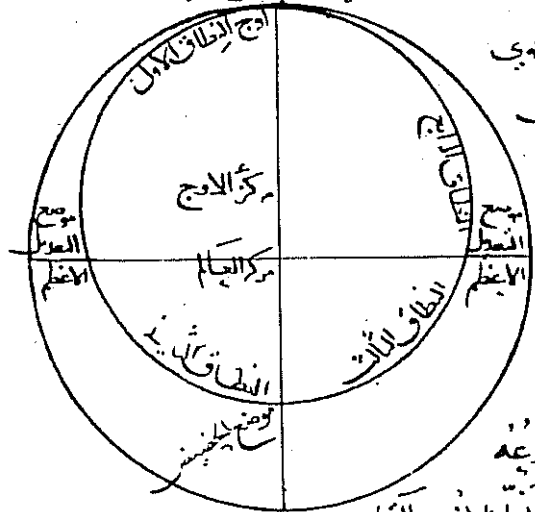 اوج النطاق الاول
النطاق الرابع
مركز الاوج
موضع
التعديل
الاعظم
موضع
التعديل
الاعظم
مركز العالم
النطاق الثالث
النطاق الثاني
موضع الحضيض